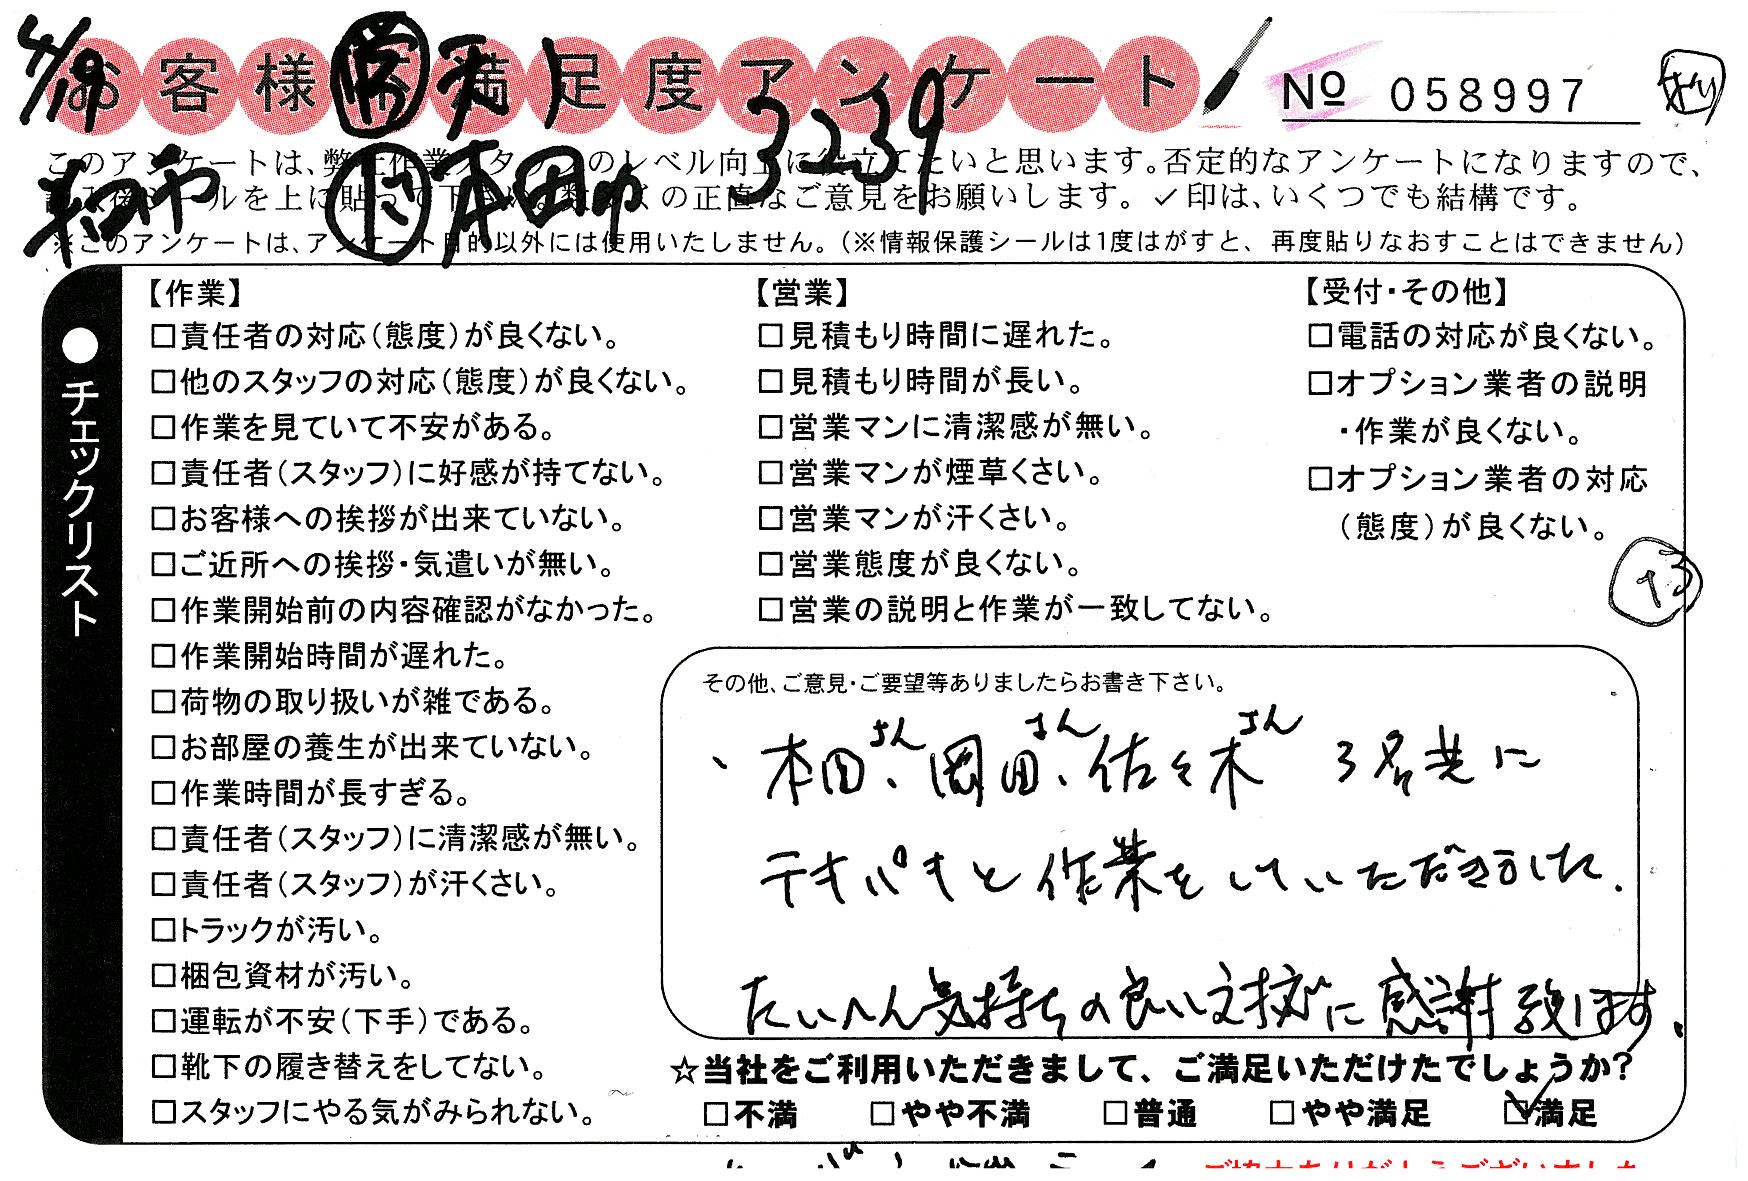 4/19
お客様不満足度アンケート
№ 058997
3239
このアンケートは、弊社作業スタッフのレベル向上に役立てたいと思います。否定的なアンケートになりますので、
記入後シールを上に貼って下さい。数多くの正直なご意見をお願いします。✓印は、いくつでも結構です。
本田
※このアンケートは、アンケート目的以外には使用いたしません。(※情報保護シールは1度はがすと、再度貼りなおすことはできません)
●チェックリスト
【作業】
□責任者の対応(態度)が良くない。
□他のスタッフの対応(態度)が良くない。
□作業を見ていて不安がある。
□責任者(スタッフ)に好感が持てない。
□お客様への挨拶が出来ていない。
□ご近所への挨拶・気遣いが無い。
□作業開始前の内容確認がなかった。
□作業開始時間が遅れた。
□荷物の取り扱いが雑である。
□お部屋の養生が出来ていない。
□作業時間が長すぎる。
□責任者(スタッフ)に清潔感が無い。
□責任者(スタッフ)が汗くさい。
□トラックが汚い。
□梱包資材が汚い。
□運転が不安(下手)である。
□靴下の履き替えをしてない。
□スタッフにやる気がみられない。
【営業】
□見積もり時間に遅れた。
□見積もり時間が長い。
□営業マンに清潔感が無い。
□営業マンが煙草くさい。
□営業マンが汗くさい。
□営業態度が良くない。
□営業の説明と作業が一致してない。
【受付・その他】
□電話の対応が良くない。
□オプション業者の説明
・作業が良くない。
□オプション業者の対応
(態度)が良くない。
13
その他、ご意見・ご要望等ありましたらお書き下さい。
、本田さん、岡田さん、佐々木さん 3名共に
テキパキと作業をしていただきました.
たいへん気持ちの良い対応に感謝致します、
☆当社をご利用いただきまして、ご満足いただけたでしょうか?
□不満 □やや不満 □普通 □やや満足 ☑満足
ご協力ありがとうございました